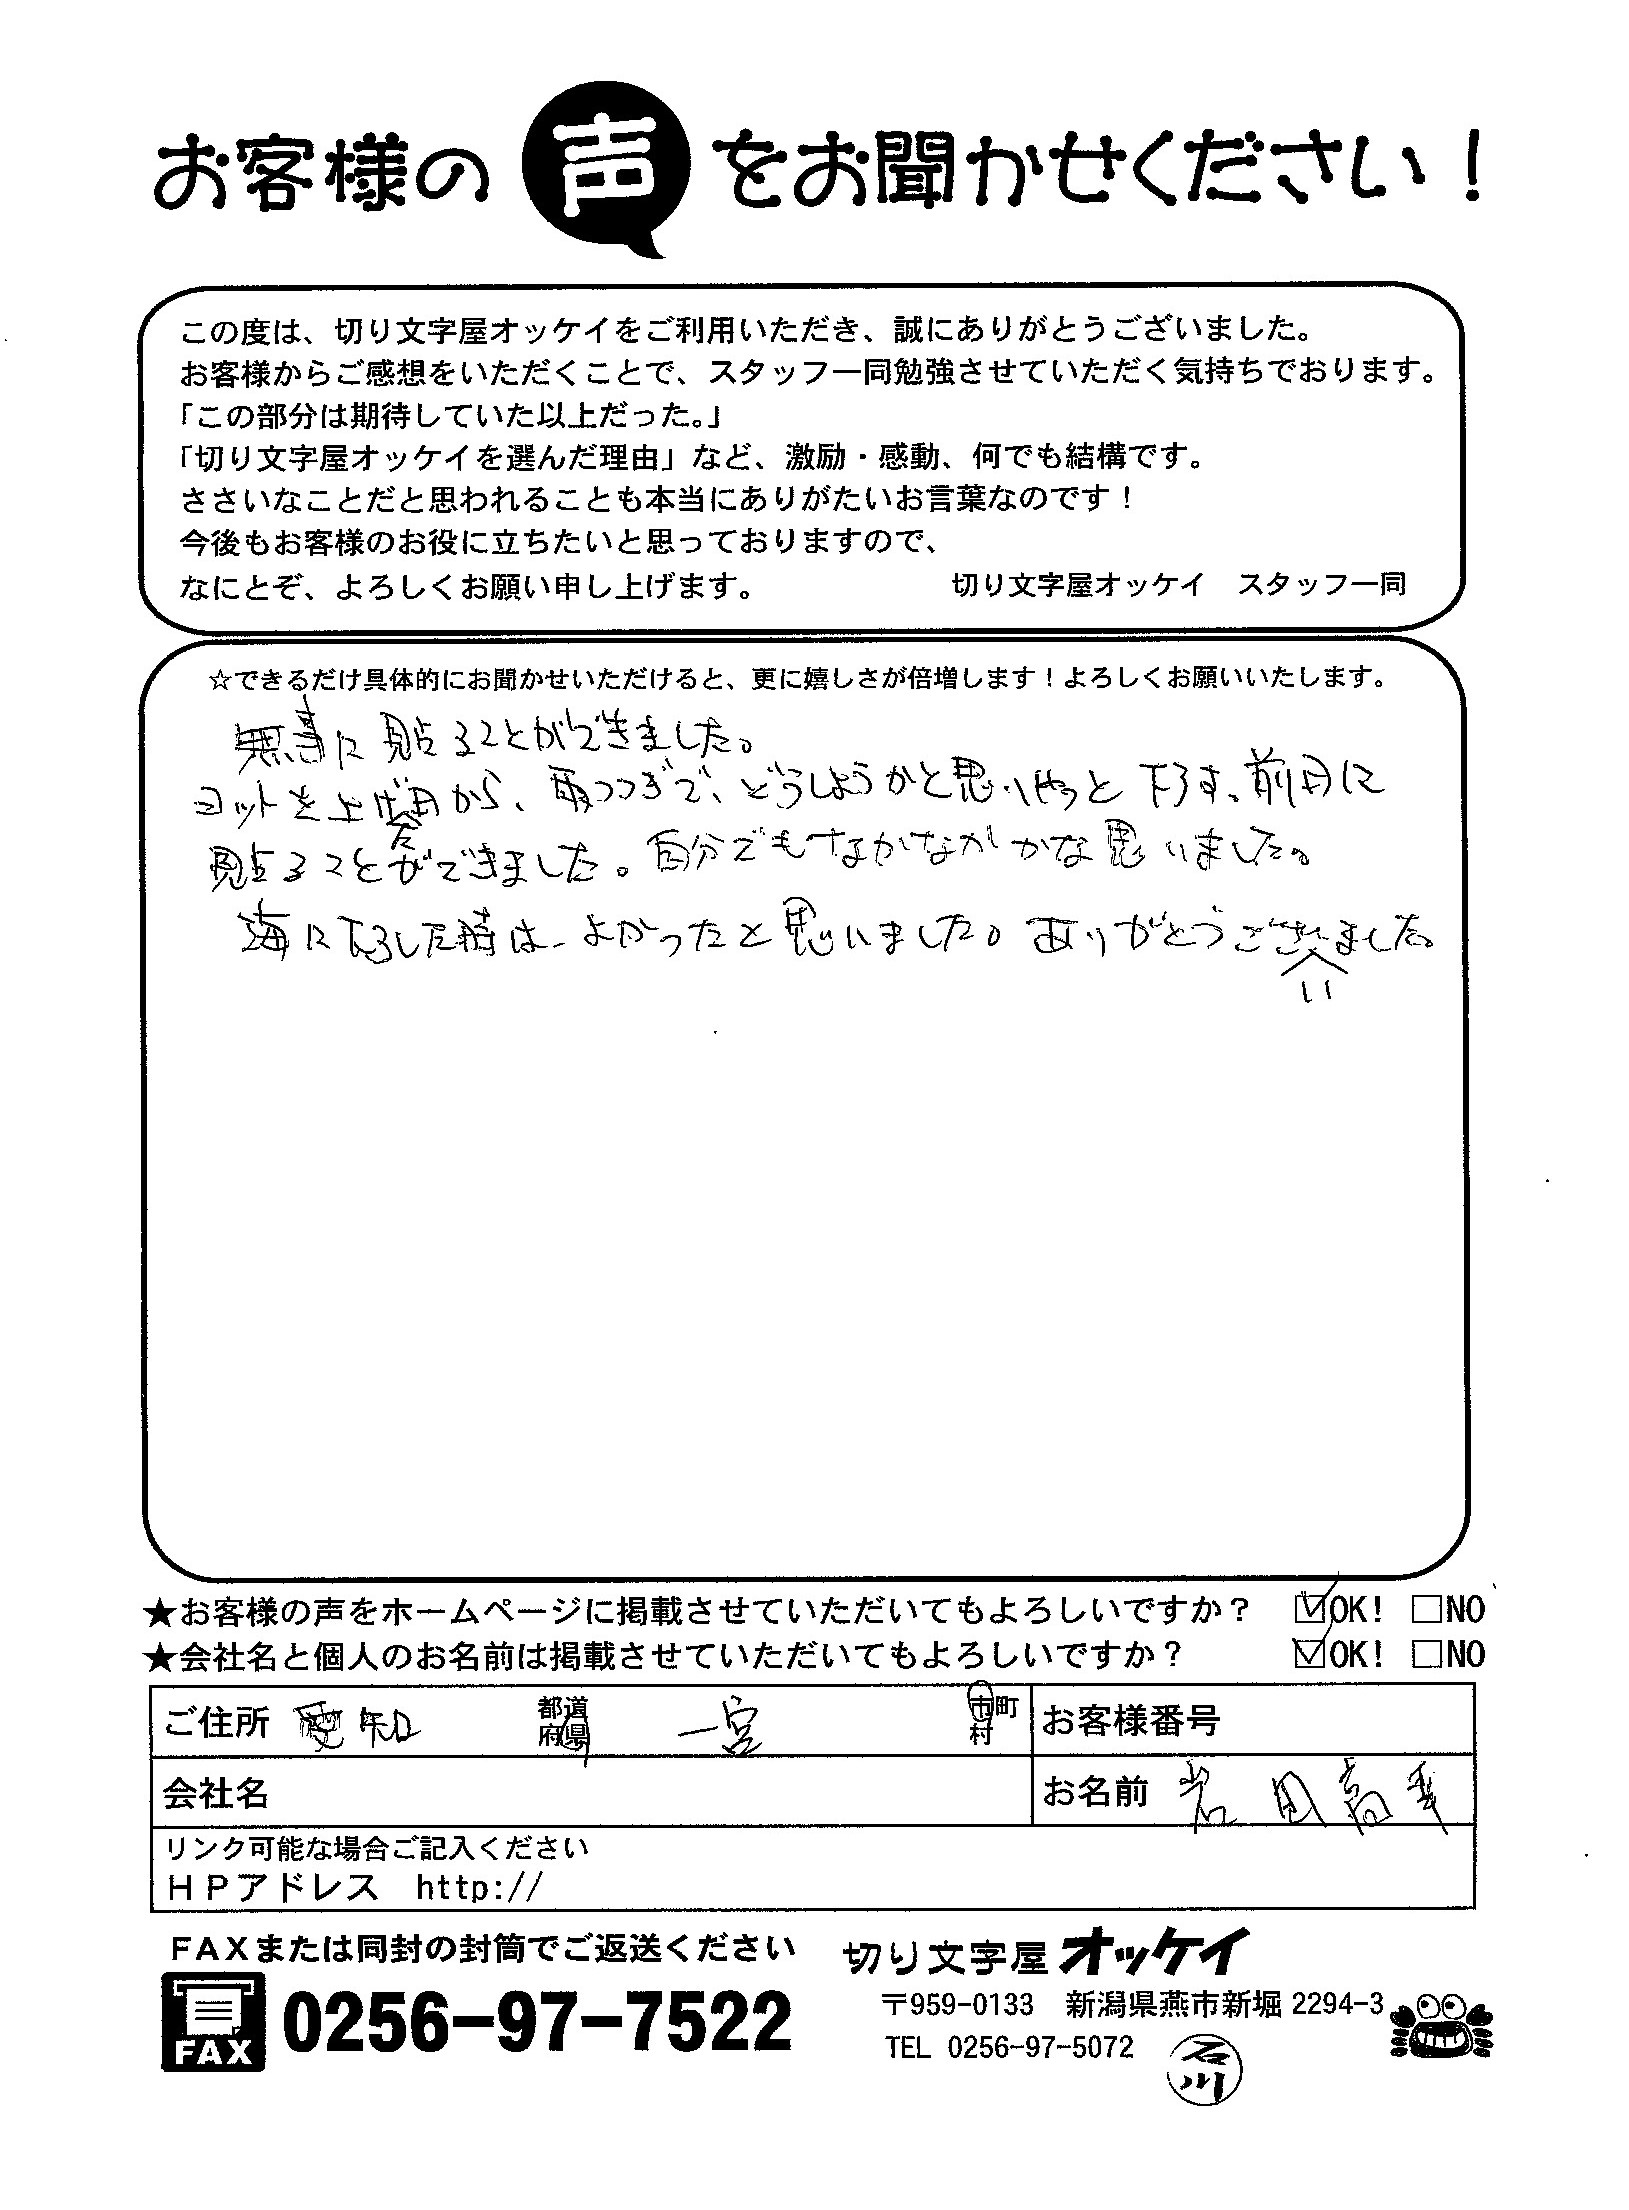 お客様の声をお聞かせください！
この度は、切り文字屋オッケイをご利用いただき、誠にありがとうございました。
お客様からご感想をいただくことで、スタッフ一同勉強させていただく気持ちでおります。
「この部分は期待していた以上だった。」
「切り文字屋オッケイを選んだ理由」など、激励・感動、何でも結構です。
ささいなことだと思われることも本当にありがたいお言葉なのです！
今後もお客様のお役に立ちたいと思っておりますので、
なにとぞ、よろしくお願い申し上げます。 切り文字屋オッケイ スタッフ一同
☆できるだけ具体的にお聞かせいただけると、更に嬉しさが倍増します！よろしくお願いいたします。
無事に貼ることができました。
ヨットを上げた日から、雨つづきで、どうしようかと思いやっと下ろす、前日に
貼ることができました。自分でもなかなかかな思いました。
海に下ろした時は、よかったと思いました。ありがとうございました。
★お客様の声をホームページに掲載させていただいてもよろしいですか？ ☑OK! □NO
★会社名と個人のお名前は掲載させていただいてもよろしいですか？ ☑OK! □NO
ご住所 愛知 都道府県 一宮 市町村 お客様番号
会社名 お名前 岩田高幸
リンク可能な場合ご記入ください
ＨＰアドレス http://
ＦＡＸまたは同封の封筒でご返送ください 切り文字屋オッケイ
FAX 0256-97-7522
〒959-0133 新潟県燕市新堀 2294-3
TEL 0256-97-5072
石川